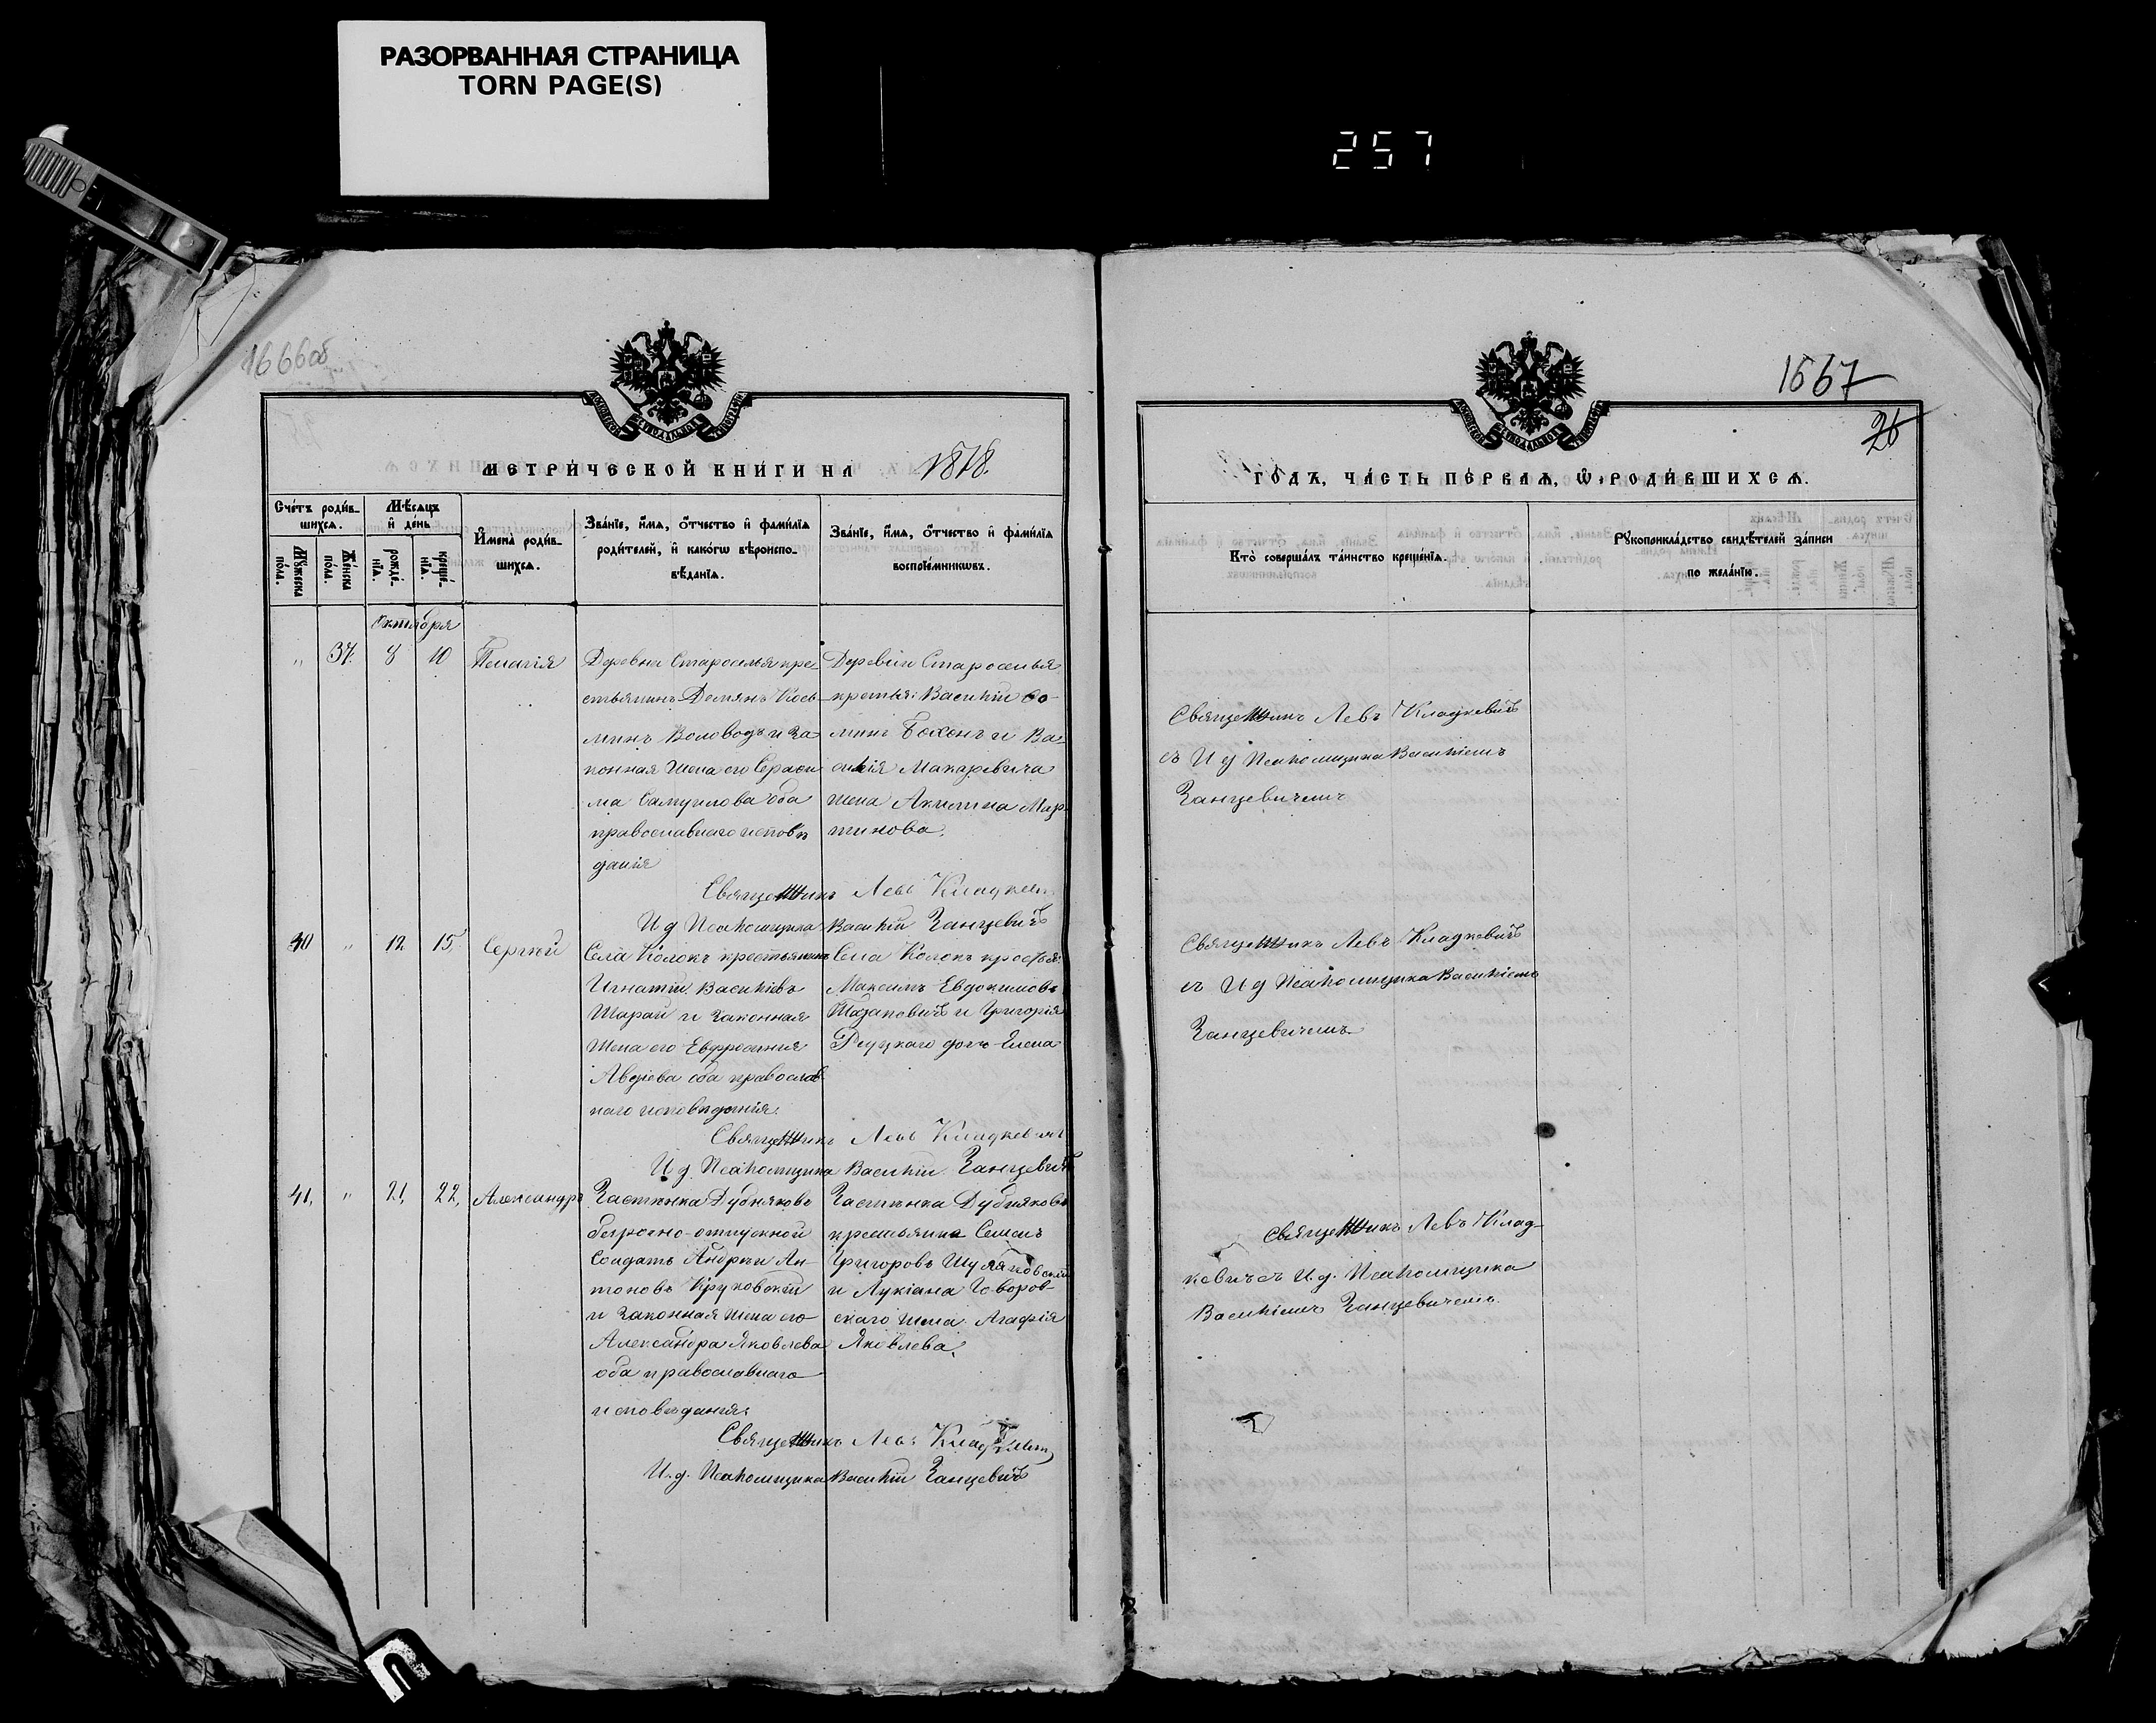 РАЗОРВАННАЯ СТРАНИЦА
TORN PAGE(S)
257
1666об
1667
26
МЕТРИЧЕСКОЙ КНИГИ НА 1878.
ГОДЪ, ЧАСТЬ ПЕРВАЯ, Ѡ РОДИВШИХСЯ.
Счетъ родившихся.
Мужеска пола.
Женска пола.
Мѣсяцъ и день
рожденія.
крещенія.
Имена родившихся.
Званіе, имя, отчество и фамилія родителей, и какогѡ вѣроисповѣданія.
Званіе, имя, отчество и фамилія воспріемниковъ.
Кто совершалъ таинство крещенія.
Рукоприкладство свидѣтелей записи по желанію.
Октября
" 37. 8 10 Пелагія
Деревни Староселья кре-
стьянинъ Демянъ Кось-
минъ Воловодъ и за
конная жена его Ефроси
ма Самуилова оба
православнаго исповѣ
данія
Деревни Староселья
крестья: Василій Ѳо-
минъ Боханъ и Ва-
силія Макаревича
жена Акилина Мар
тинова.
Священникъ Левъ Кладкевичъ
съ И д Псаломщика Василіемъ
Занцевичемъ
Священникъ Левъ Кладкевичъ
И д Псаломщика Василій Занцевичъ
40 " 12 15 Сергій
Села Колокъ крестьянинъ
Игнатій Василіевъ
Шарай и законная
жена его Евфросинія
Авдіева оба православ
наго исповѣданія.
Села Колокъ крестья:
Максимъ Евдокимовъ
и Григорія
дочь Елена
Священникъ Левъ Кладкевичъ
съ И д Псаломщика Василіемъ
Занцевичемъ
Священникъ Левъ Кладкевичъ
И д. Псаломщика Василій Занцевичъ
41, " 21, 22, Александръ
Застѣнка Дубняковъ
безсрочно-отпускной
Солдатъ Андрей Ан-
тоновъ Круковскій
и законная жена его
Александра Яковлева
оба православнаго
исповѣданія.
Застѣнка Дубняковъ
крестьянинъ Семенъ
Григоровъ
и Лукіана Говоров-
скаго жена Агафія
Яковлева.
Священникъ Левъ Клад-
кевичъ съ И. д. Псаломщика
Василіемъ Занцевичемъ.
Священникъ Левъ Кладкевичъ
И. д. Псаломщика Василій Занцевичъ